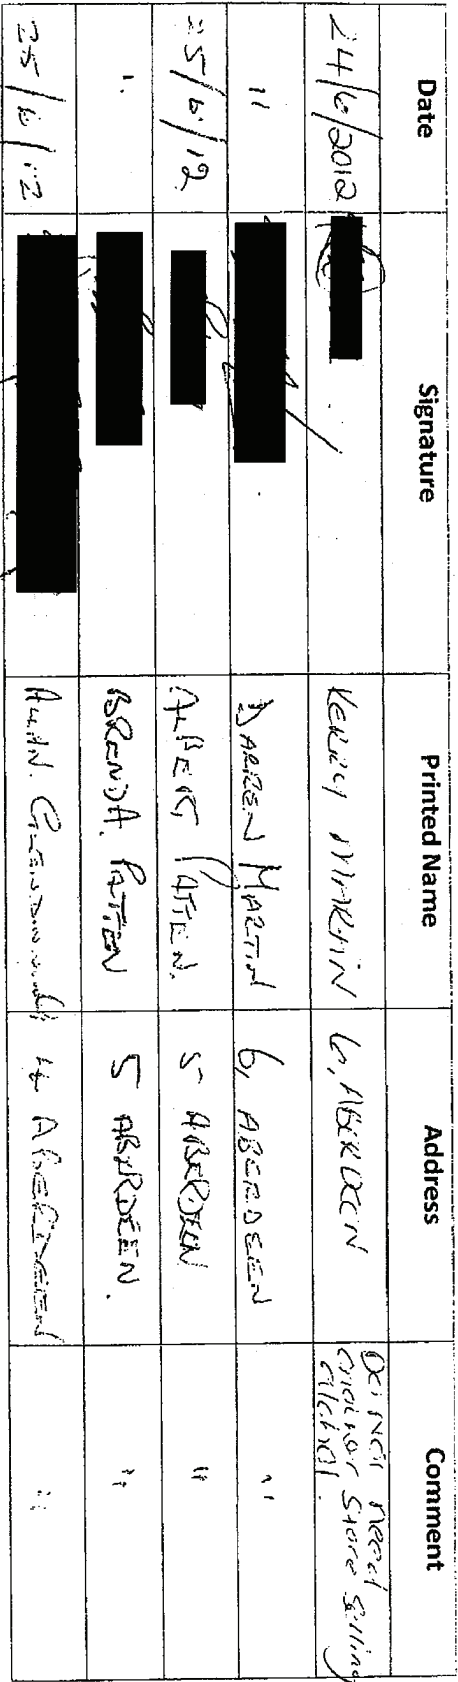 Date Signature Printed Name Address Comment
24/6/2012 KERRY MARTIN 6, ABERDEEN Do not need
another store selling
alcohol.
" DARREN MARTIN 6, ABERDEEN "
25/6/12 ALBERT PATTEN. 5 ABERDEEN "
" BRENDA. PATTEN 5 ABERDEEN. "
25/6/12 ALAN. 4 ABERDEEN "